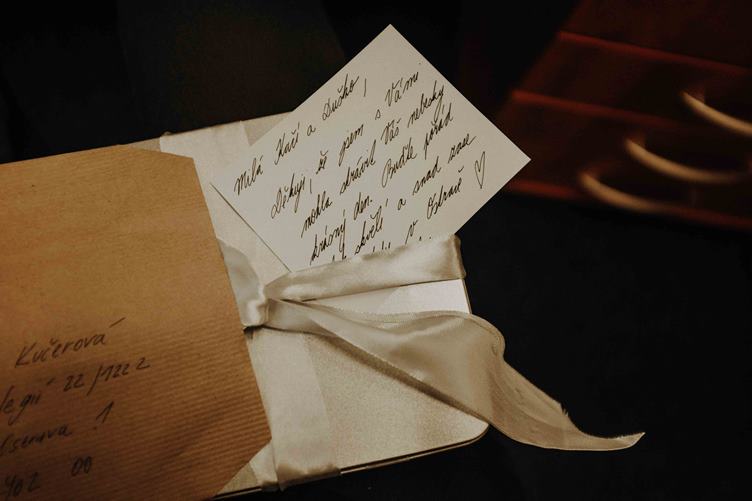 Milá Kačí a Duško,
Děkuji, že jsem s Vámi
mohla strávit Váš nebesky
krásný den. Buďte pořád
skvělí a snad zase
v Ostravě ♡
Kučerová
legií 22/1222
Ostrava 1
702 00